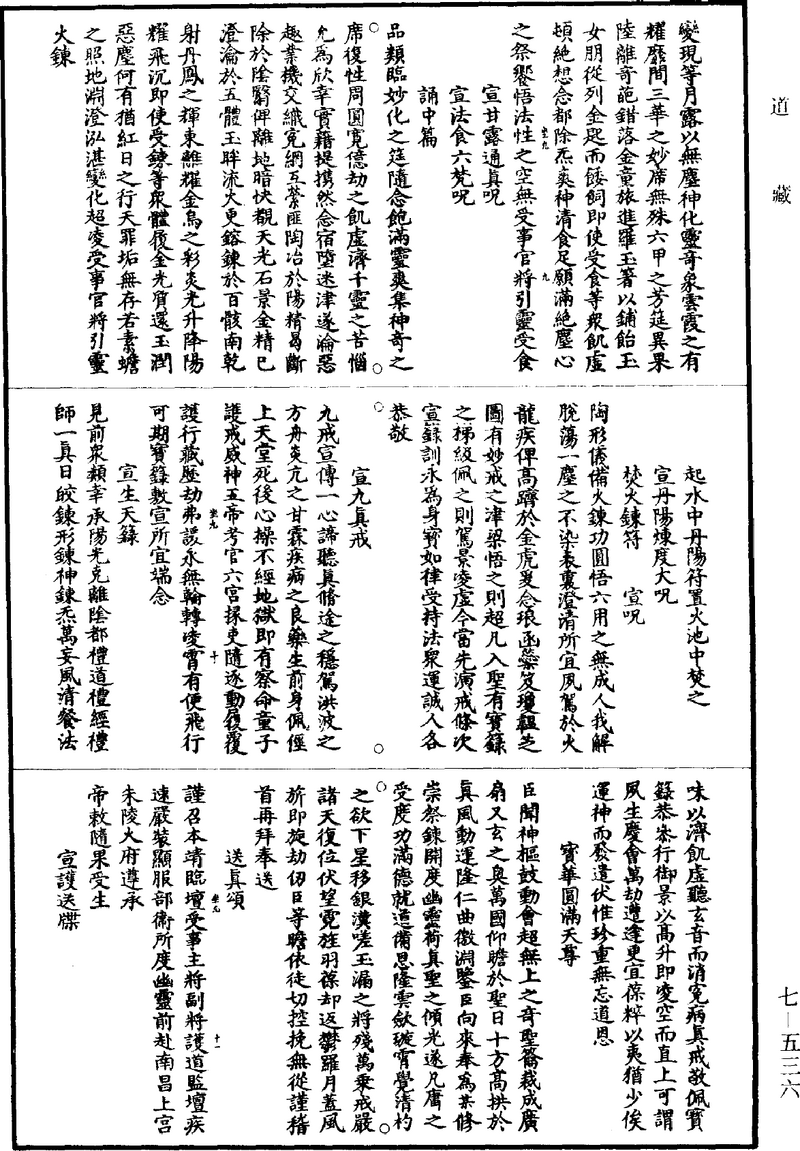 道藏
七—五三六
變現等月露以無塵神化靈奇象雲霞之有
耀靡間三華之妙席無殊六甲之芳筵異果
陸離奇葩錯落金童旅進羅玉箸以鋪飴玉
女朋從列金匙而餧飼即使受食等衆飢虛
頓絶想念都除炁爽神清食足願滿絶塵心
之祭饗悟法性之空無受事官將引靈受食
宣甘露通真呪
宣法食六梵呪
誦中篇
品類臨妙化之筵隨念飽滿靈爽集神奇之
席復性周圓寬億劫之飢虛濟千靈之苦惱
允為欣幸實藉提携然念宿墮迷津遂淪惡
趣業機交織寃網互縈匪陶冶於陽精曷斷
除於陰翳俾離地暗快覩天光石景金精已
澄淪於五體玉眸流火更鎔鍊於百骸南乾
射丹鳳之輝東離耀金烏之彩炎光升降陽
耀飛沉即使受鍊等衆體履金光質還玉潤
惡塵何有猶紅日之行天罪垢無存若素蟾
之照地淵澄泓湛變化超凌受事官將引靈
火鍊
起水中丹陽符置火池中焚之
宣丹陽煉度大呪
焚火鍊符　宣呪
陶形儀備火鍊功圓悟六用之無成人我解
脫蕩一塵之不染表裏澄清所宜夙駕於火
龍疾俾高躋於金虎爰念琅函蘂笈瓊韞芝
圖有妙戒之津梁悟之則超凡入聖有寶籙
之梯級佩之則駕景凌虛今當先演戒條次
宣籙訓永為身寶如律受持法衆運誠人各
恭敬
宣九真戒
九戒宣傳一心諦聽真脩途之穩駕洪波之
方舟炎亢之甘霖疾病之良藥生前身佩徑
上天堂死後心操不經地獄即有察命童子
護戒威神五帝考官六宮掾吏隨逐動履覆
護行藏歷劫弗諼永無輪轉凌霄有便飛行
可期寶籙敷宣所宜端念
宣生天籙
見前衆類幸承陽光克離陰都禮道禮經禮
師一真日皎鍊形鍊神鍊炁萬妄風清餐法
味以濟飢虛聽玄音而消寃病真戒敬佩寶
籙恭崇行御景以高升即凌空而直上可謂
夙生慶會萬劫遭逢更宜葆粹以夷猶少俟
運神而發遣伏惟珍重無忘道恩
寶華圓滿天尊
臣聞神樞鼓動會超無上之奇聖籥裁成廣
扇又玄之奧萬國仰瞻於聖日十方高拱於
真風動運隆仁曲徹淵鑒臣向來奉為某修
崇祭鍊開度幽靈荷真聖之傾光遂凡庸之
受度功滿德就道備思隆雲斂璇霄覺清杓
之欲下星移銀漢嗟玉漏之將殘萬乘戒嚴
諸天復位伏望霓旌羽葆却返鬱羅月蓋風
旂即旋劫仞臣等瞻依徒切控挽無從謹稽
首再拜奉送
送真頌
謹召本靖臨壇受事主將副將護道監壇疾
速嚴裝顯服部衛所度幽靈前赴南昌上宮
朱陵火府遵承
帝敕隨果受生
宣護送牒